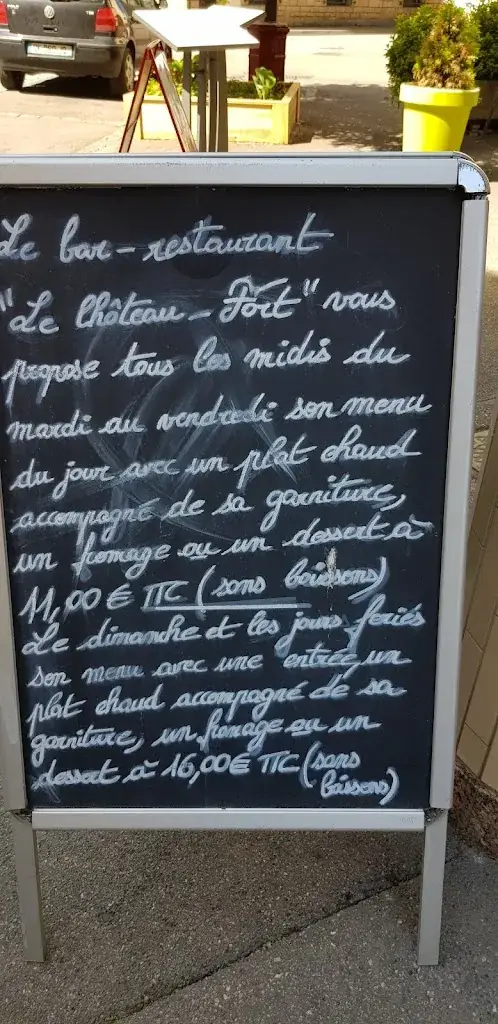 Le bar-restaurant
"Le Château-Fort" vous
propose tous les midis du
mardi au vendredi son menu
du jour avec un plat chaud
accompagné de sa garniture,
un fromage ou un dessert à
11,00 € TTC (sans boissons)
Le dimanche et les jours feriés
son menu avec une entrée, un
plat chaud accompagné de sa
garniture, un fromage ou un
dessert à 16,00 € TTC (sans
boissons)